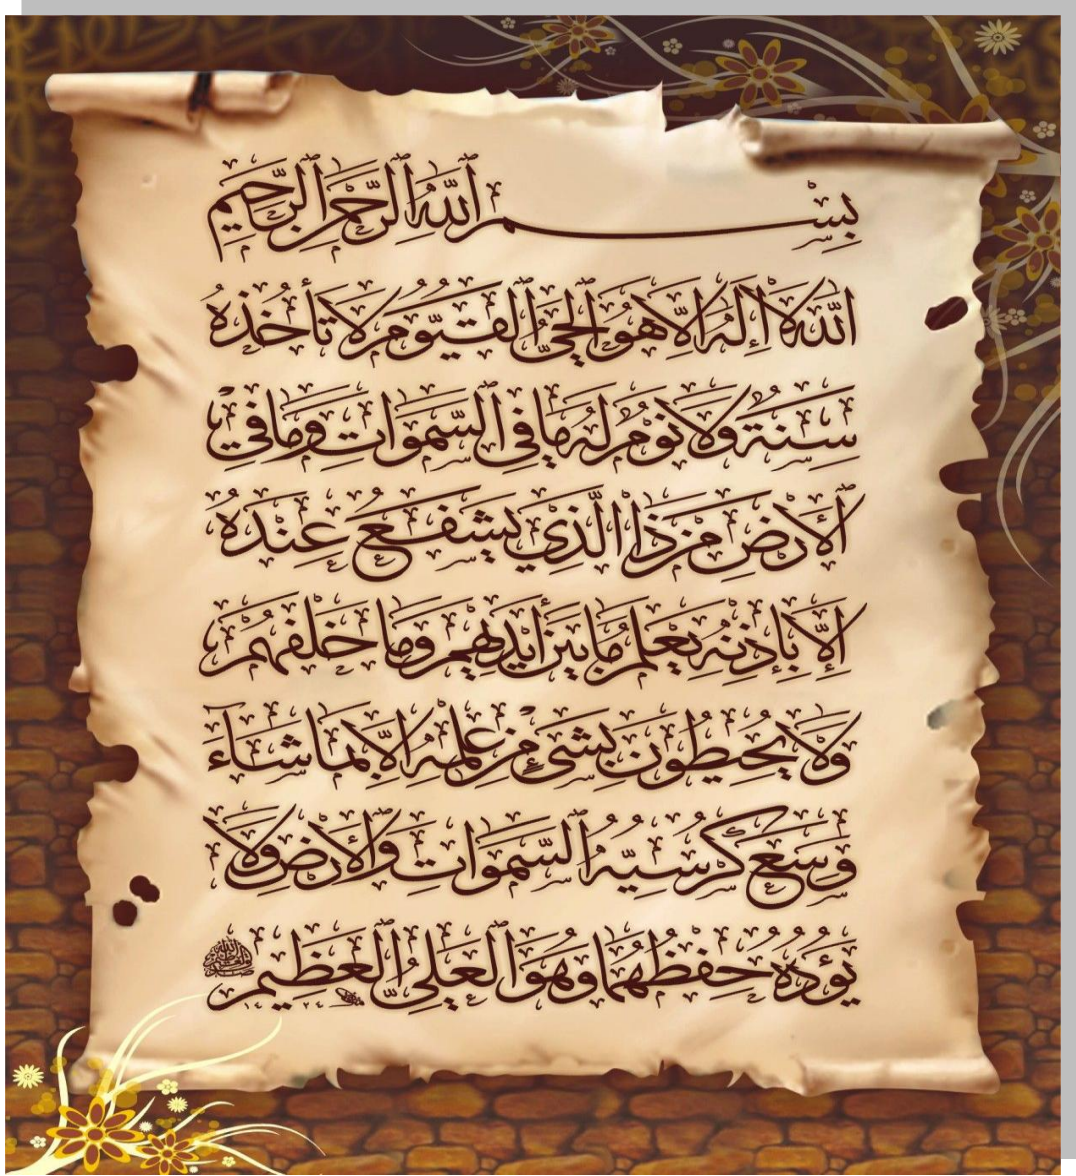 بِسْمِ ٱللَّهِ ٱلرَّحْمٰنِ ٱلرَّحِيمِ
اللَّهُ لَا إِلٰهَ إِلَّا هُوَ الْحَيُّ الْقَيُّومُ لَا تَأْخُذُهُ
سِنَةٌ وَلَا نَوْمٌ لَهُ مَا فِي السَّمٰوَاتِ وَمَا فِي
الْأَرْضِ مَنْ ذَا الَّذِي يَشْفَعُ عِنْدَهُ
إِلَّا بِإِذْنِهِ يَعْلَمُ مَا بَيْنَ أَيْدِيهِمْ وَمَا خَلْفَهُمْ
وَلَا يُحِيطُونَ بِشَيْءٍ مِنْ عِلْمِهِ إِلَّا بِمَا شَاءَ
وَسِعَ كُرْسِيُّهُ السَّمٰوَاتِ وَالْأَرْضَ وَلَا
يَؤُدُهُ حِفْظُهُمَا وَهُوَ الْعَلِيُّ الْعَظِيمُ